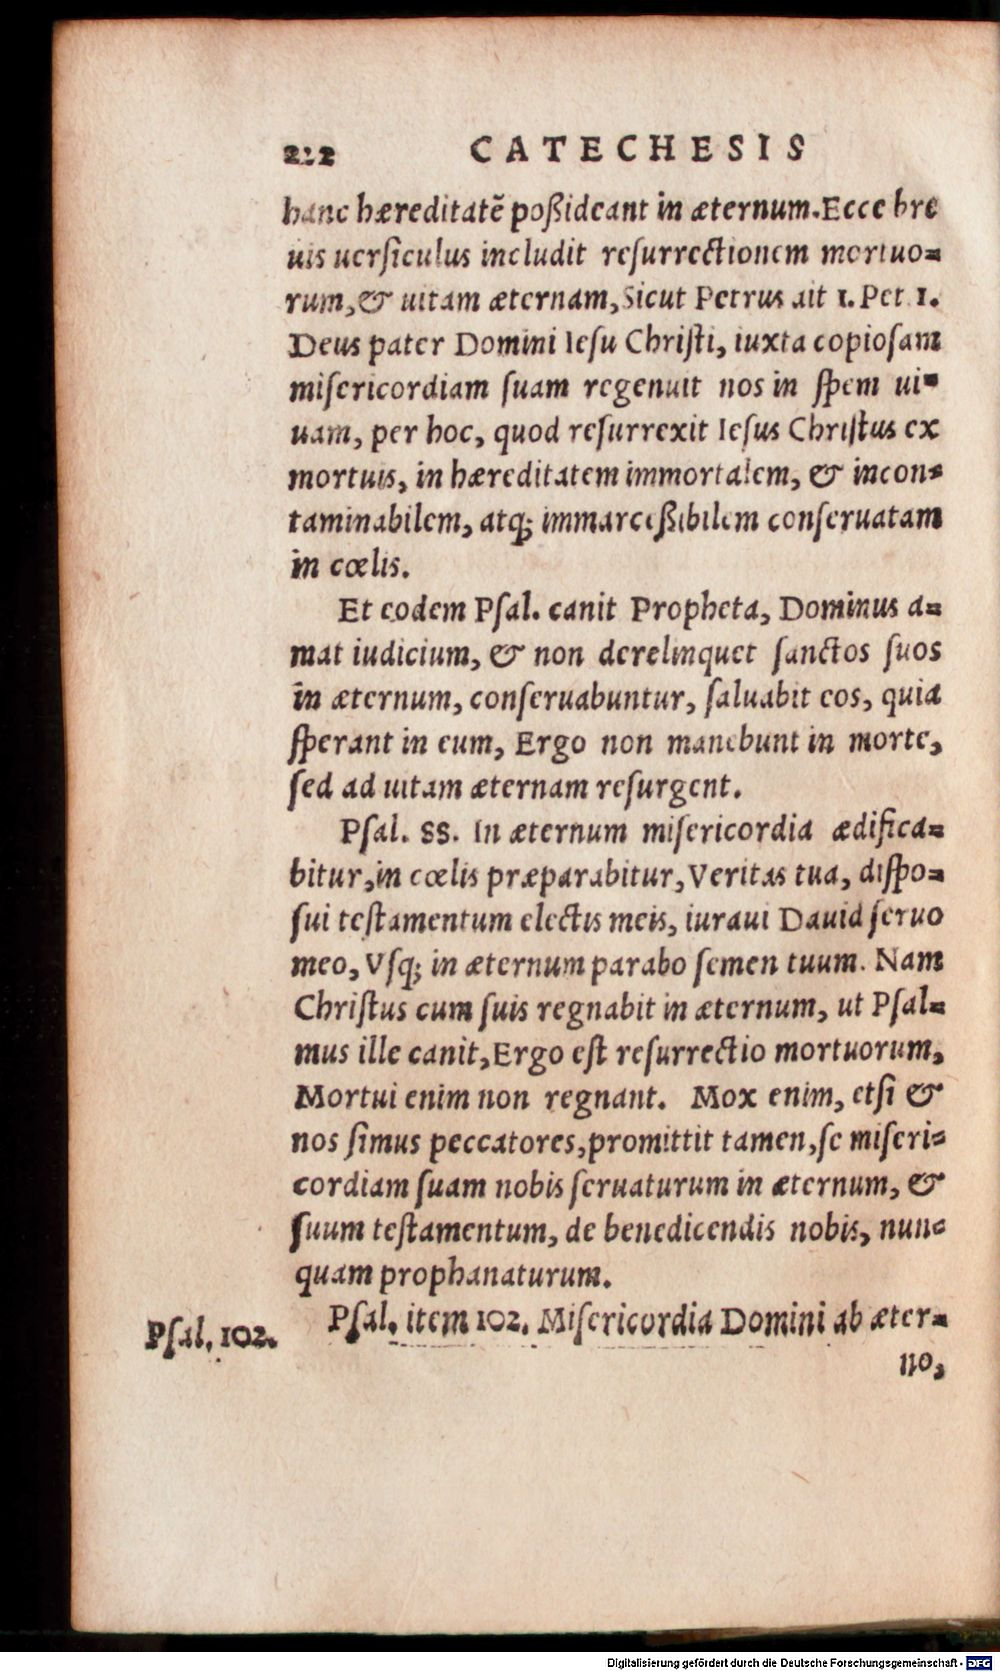 212 CATECHESIS
hanc hæreditatẽ poßideant in æternum. Ecce bre
uis uersiculus includit resurrectionem mortuo=
rum, & uitam æternam, Sicut Petrus ait 1. Pet 1.
Deus pater Domini Iesu Christi, iuxta copiosam
misericordiam suam regenuit nos in spem ui=
uam, per hoc, quod resurrexit Iesus Christus ex
mortuis, in hæreditatem immortalem, & incon=
taminabilem, atq; immarceßibilem conseruatam
in cœlis.
Et eodem Psal. canit Propheta, Dominus a=
mat iudicium, & non derelinquet sanctos suos
in æternum, conseruabuntur, saluabit eos, quia
sperant in eum, Ergo non manebunt in morte,
sed ad uitam æternam resurgent.
Psal. 88. In æternum misericordia ædifica=
bitur, in cœlis præparabitur, Veritas tua, dispo=
sui testamentum electis meis, iuraui Dauid seruo
meo, Vsq; in æternum parabo semen tuum. Nam
Christus cum suis regnabit in æternum, ut Psal=
mus ille canit, Ergo est resurrectio mortuorum,
Mortui enim non regnant. Mox enim, etsi &
nos simus peccatores, promittit tamen, se miseri=
cordiam suam nobis seruaturum in æternum, &
suum testamentum, de benedicendis nobis, nun=
quam prophanaturum.
Psal. 102.
Psal. item 102. Misericordia Domini ab æter=
no,
Digitalisierung gefördert durch die Deutsche Forschungsgemeinschaft - DFG